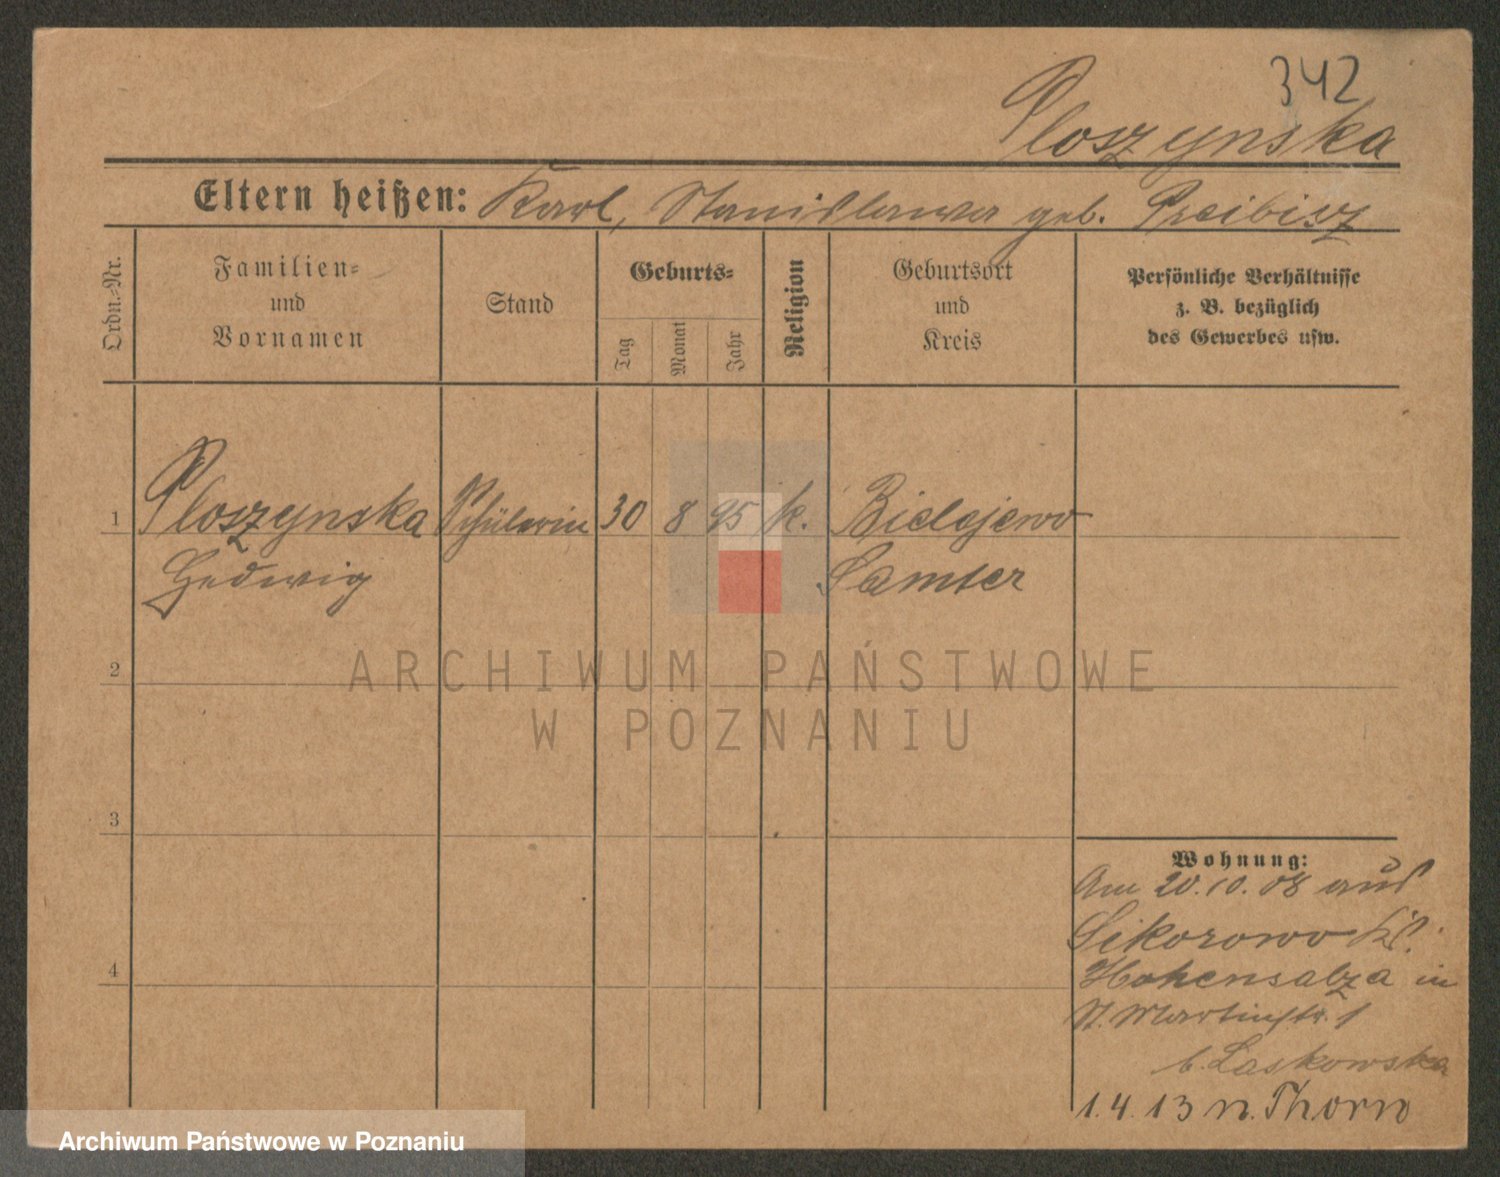 342
Ploszynska
Eltern heißen: Karl, Stanislawa geb. Preibisz
Ordn.-Nr.
Familien-
und
Vornamen
Stand
Geburts-
Tag
Monat
Jahr
Religion
Geburtsort
und
Kreis
Persönliche Verhältnisse
z. B. bezüglich
des Gewerbes usw.
1 Ploszynska Schülerin 30 8 95 k. Bielejewo
Hedwig Samter
2
3
4
Wohnung:
Am 20.10.08 aus
Sikorowo Kr.
Hohensalza in
St. Martinstr. 1
b. Laskowska
1.4.13 n. Thorn
ARCHIWUM PAŃSTWOWE
W POZNANIU
Archiwum Państwowe w Poznaniu